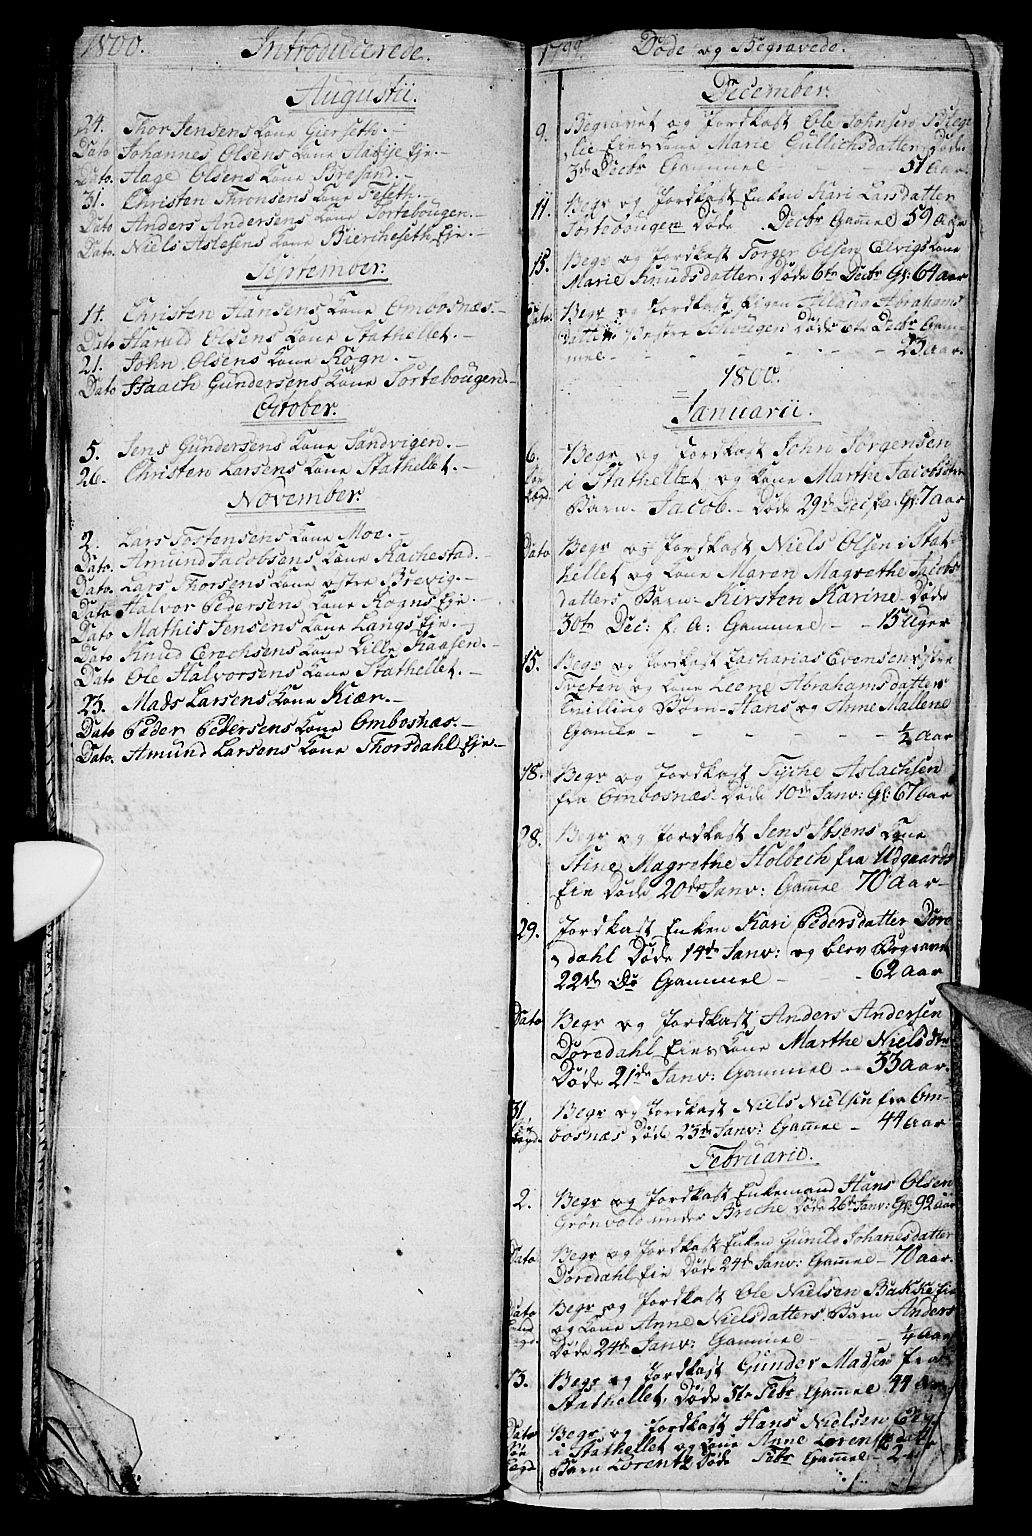 1800. Introducerede.
Augustii.
24. Thor Jensens Kone Gierseth. -
Dato Johannes Olsens Kone Eje. -
Dato. Aage Olsens Kone Bresand. -
31. Christen Thronsens Kone Feseth. -
Dato Anders Andersens Kone Tortebougen. -
Dato. Niels Aslesens Kone Biercheseth Eje. -
September.
14. Christen Hansens Kone Ombosnæs. -
Dato Harald Olsens Kone Stathellet. -
21. John Olsens Kone Rogn. -
Dato Isaach Gundersens Kone Tortebougen. -
October.
5. Jens Gundersens Kone Sandvigen. -
26. Christen Larsens Kone Stathellet. -
November.
2. Lars Tostensens Kone Moe. -
Dato. Amund Jacobsens Kone Rachestad. -
Dato. Lars Thorsens Kone østre Brevig. -
Dato Halvor Pedersens Kone Rogns Eje. -
Dato Mathis Jensens Kone Langs Eje. -
Dato Knud Erechsens Kone Lille Raasen. -
Dato Ole Halvorsens Kone Stathellet. -
23. Mads Larsens Kone Kiær. -
Dato Peder Pedersens Kone Ombosnæs. -
Dato. Amund Larsens Kone Thorsdahl Eje -
1799. Døde og Begravede.
December.
9. Begravet og Jordkast Ole Johnsen Biege
lie Eies Kone Marie Gullichsdatter Døde
3de Decbr Gammel - 51 Aar
11. Begr og Jordkast Enken Kari Larsdatter
Tortebougen Døde Decbr Gamel 59 Aar
15. Begr og Jordkast Torger Olsen Elvigs Kone
Marie Knudsdatter. Døde 6te Decbr Gl: 64 aar
Dato. Begr og Jordkast Pigen Abrahams
datter Vestre Schougen Døde 6te Decbr Gam-
mel - - - - - 23 Aar.
1800.
Januarii.
6. Begr og Jordkast John Jørgensen
i Stathellet og Kone Marthe Jacobsdtr
Barn - Jacob. - Døde 29de Dec f.a. Gl: 7 aar
Dato Begr og Jordkast Niels Olsen i Stat-
hellet og Kone Maren Magrethe Jacobs
datters Barn - Kirsten Karine Døde
30te Dec: f. A: Gammel - 15 Uger
15. Begr og Jordkast Zacharias Evensen østre
Tveten og Kone Leene Abrahamsdatters
Tvilling Børn - Hans og Anne Mallene
Gamle - - - - - 1/2 Aar
18. Begr og Jordkast Tyche Aslachsen
fra Ombosnæs Døde 10de Janv: Gl: 67 aar
28. Begr og Jordkast Jens Ibsens Kone
Stine Magrethe Holbech fra Udgaards
Eie Døde 20de Janv: Gammel 70 Aar -
29. Jordkast Enken Kari Pedersdatter Døre
dahl Døde 14de Janv: og blev Begravet
22de Do Gammel - 62 Aar
Dato Begr og Jordkast Anders Andersen
Døredahl Eies Kone Marthe Nielsdtr
Døde 21de Janv: Gammel - 33 Aar.
31 Begr og Jordkast Niels Nielsen fra Om-
bosnæs Døde 23de Janv: Gammel - 44 Aar
Februarii.
2. Begr og Jordkast Enkemand Hans Olsen
Grønvold under Breche Døde 26de Janv: Gl: 92 aar
Dato Begr og Jordkast Enken Gunild Johanesdatter
Døredahl Eie Døde 24de Janv: Gammel - 70 Aar.
Dato Begr og Jordkast Ole Nielsen Bakke Eie
og Kone Anne Nielsdatters Barn Anders
Døde 24de Janv: Gammel - 1/4 Aar
13. Begr og Jordkast Gunder Madsen fra
Stathellet, Døde 5te Febr Gammel 44 Aar
Dato Begr og Jordkast Hans Nielsen
i Stathellet og Kone Anne Lorentzdatt
Barn Lorentz Døde Febr Gammel - 2